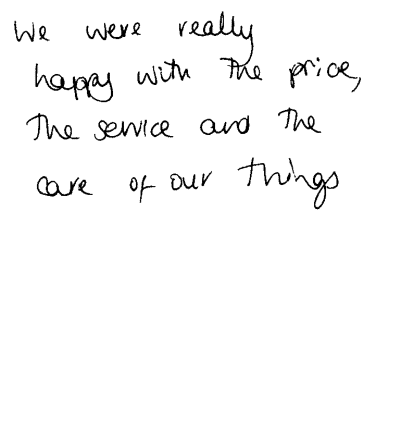 We were really
happy with the price,
The service and the
care of our things